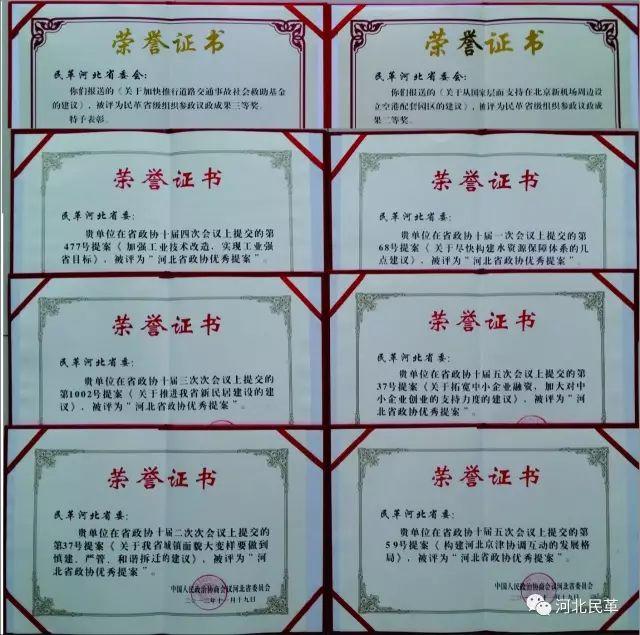 荣誉证书
民革河北省委会：
你们报送的《关于加快推行道路交通事故社会救助基金
的建议》，被评为民革省级组织参政议政成果三等奖。
特予表彰。
荣誉证书
民革河北省委会：
你们报送的《关于从国家层面支持在北京新机场周边设
立空港配套园区的建议》，被评为民革省级组织参政议政成
果二等奖。
荣誉证书
民革河北省委：
贵单位在省政协十届四次会议上提交的第
477号提案《加强工业技术改造，实现工业强
省目标》，被评为“河北省政协优秀提案”。
荣誉证书
民革河北省委：
贵单位在省政协十届一次会议上提交的第
68号提案《关于尽快构建水资源保障体系的几
点建议》，被评为“河北省政协优秀提案”。
荣誉证书
民革河北省委：
贵单位在省政协十届三次次会议上提交的
第1002号提案《关于推进我省新民居建设的建
议》，被评为“河北省政协优秀提案”。
荣誉证书
民革河北省委：
贵单位在省政协十届五次会议上提交的第
37号提案《关于拓宽中小企业融资，加大对中
小企业创业的支持力度的建议》，被评为“河北
省政协优秀提案”。
荣誉证书
民革河北省委：
贵单位在省政协十届二次次会议上提交的
第37号提案《关于我省城镇面貌大变样要做到
慎建、严管、和谐拆迁的建议》，被评为“河
北省政协优秀提案”。
中国人民政治协商会议河北省委员会
二〇一二年十一月十九日
荣誉证书
民革河北省委：
贵单位在省政协十届五次会议上提交的第
59号提案《构建河北京津协调互动的发展格
局》，被评为“河北省政协优秀提案”。
中国人民政治协商会议河北省委员会
河北民革